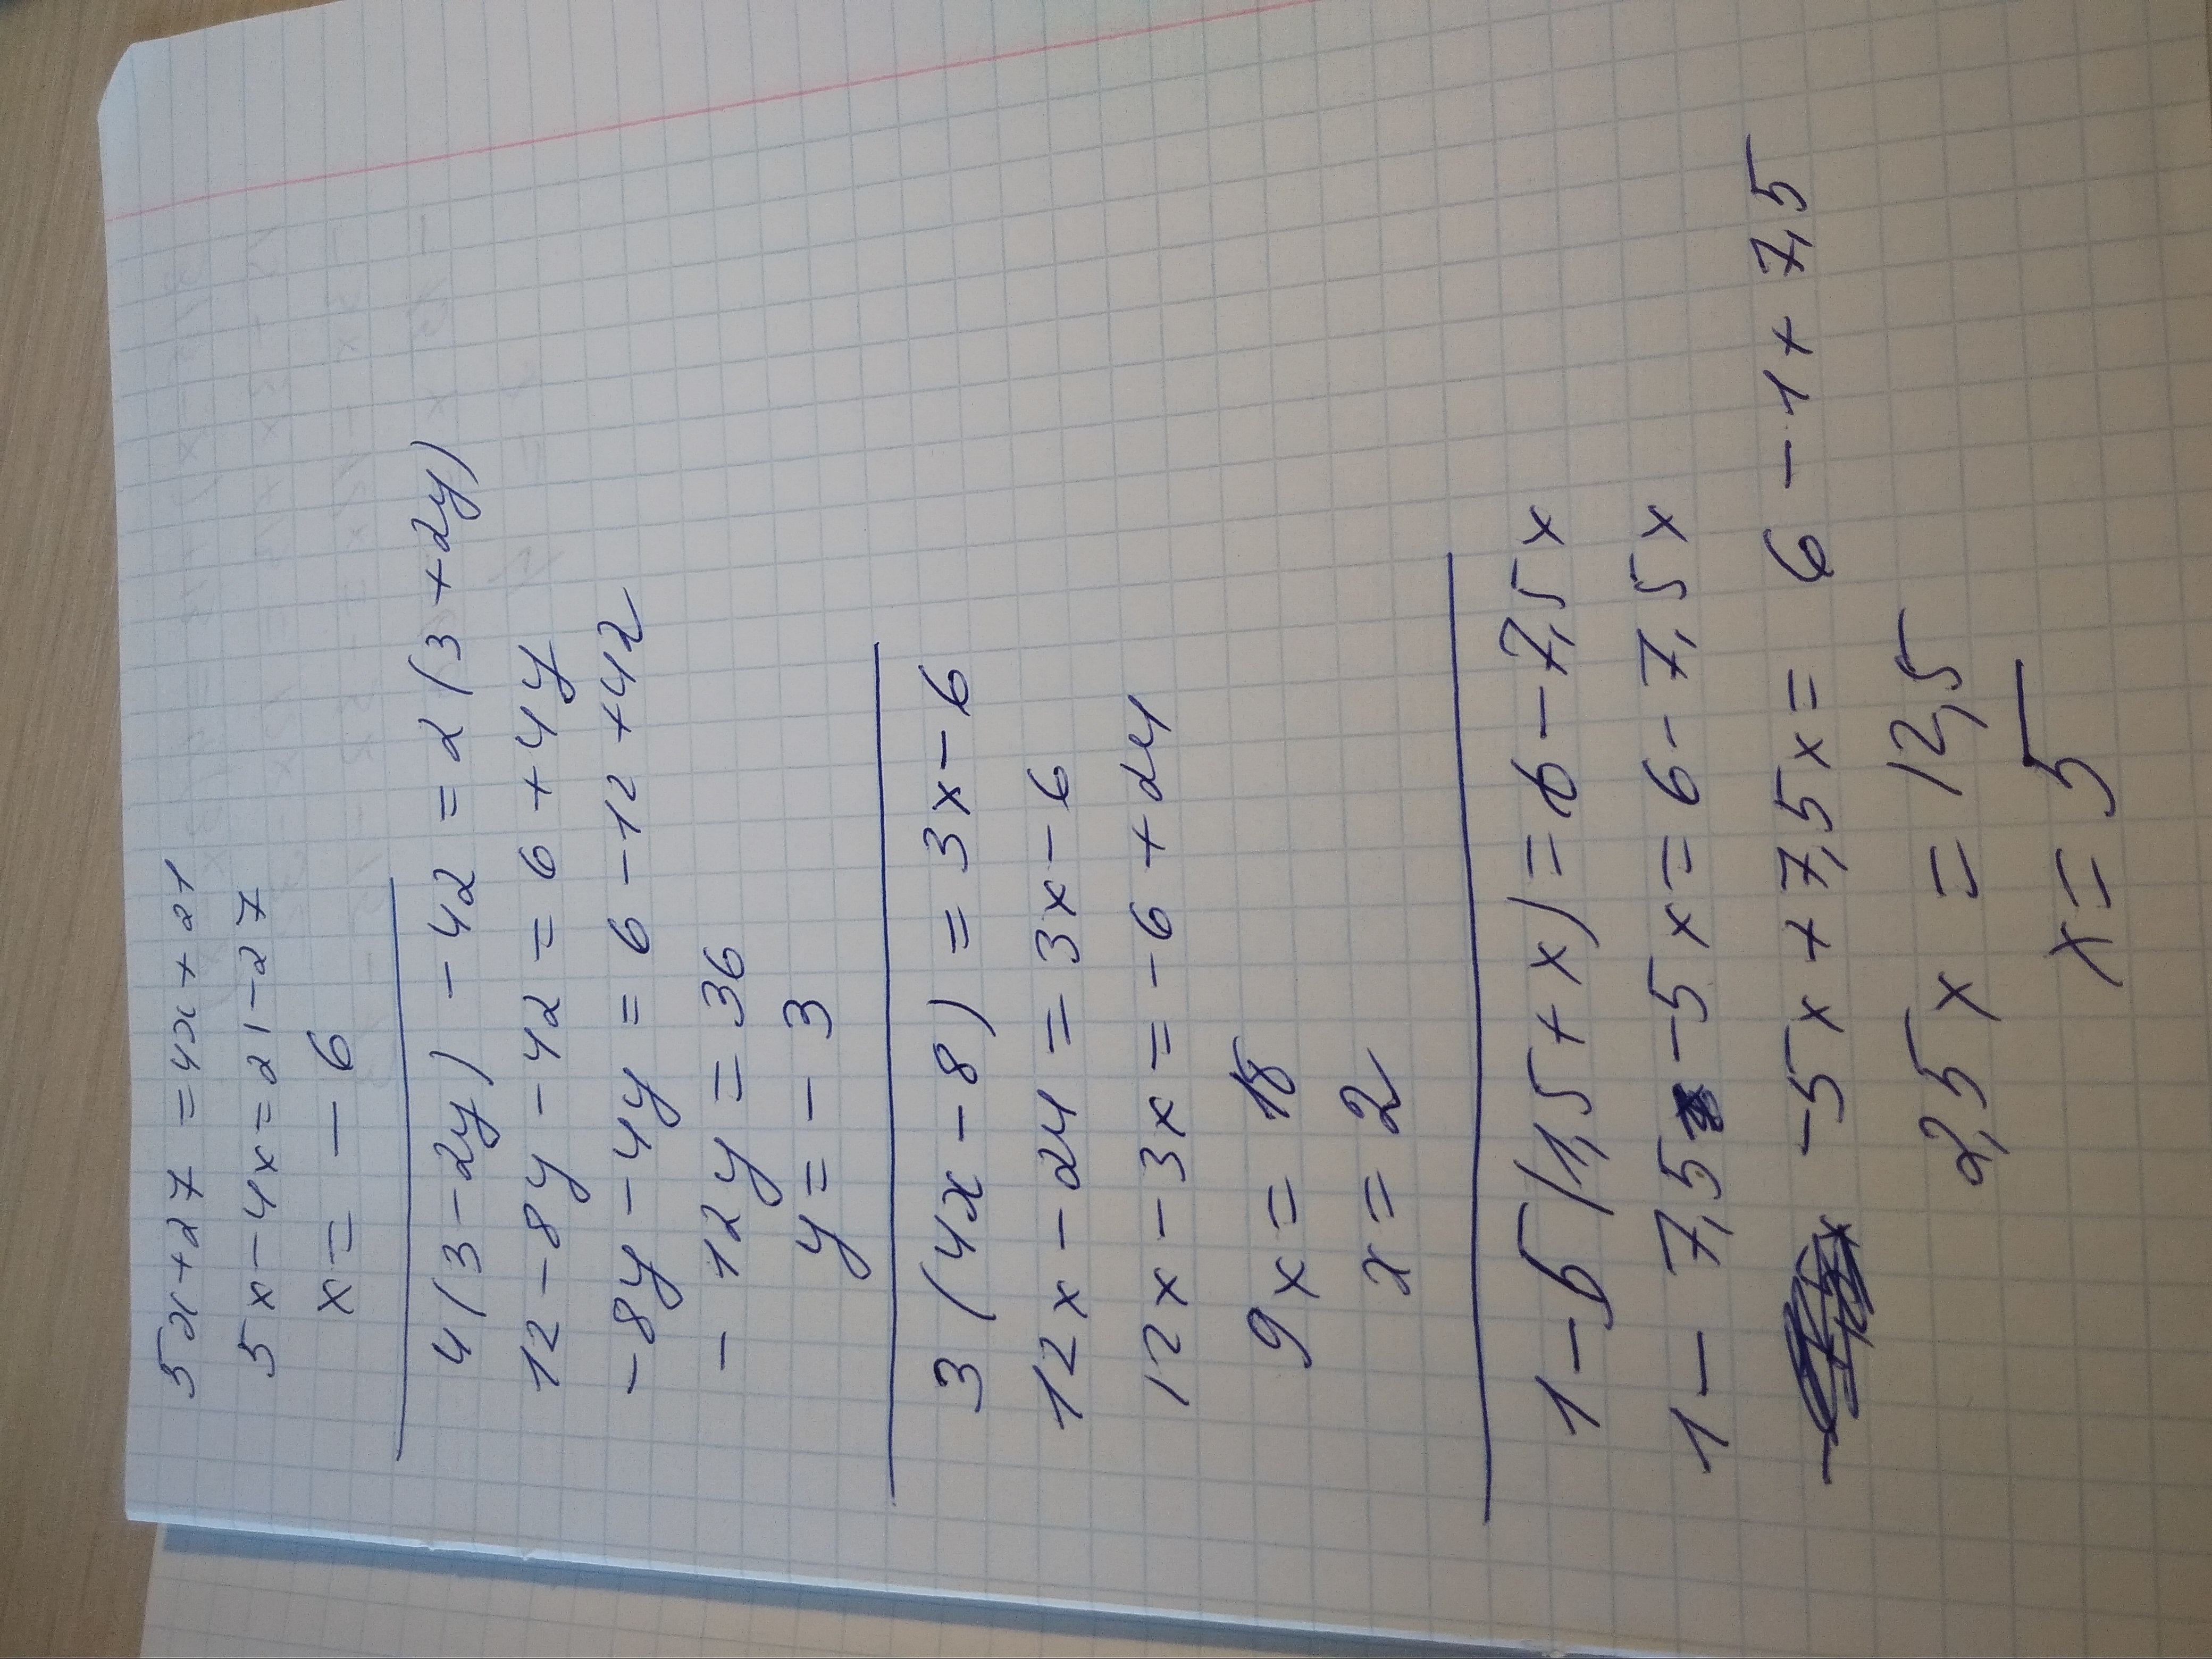 5x+27=4x+21
5x-4x=21-27
x=-6
4(3-2y)-42=2(3+2y)
12-8y-42=6+4y
-8y-4y=6-12+42
-12y=36
y=-3
3(4x-8)=3x-6
12x-24=3x-6
12x-3x=-6+24
9x=18
x=2
1-5(1,5+x)=6-7,5x
1-7,5-5x=6-7,5x
-5x+7,5x=6-1+7,5
2,5x=12,5
x=5